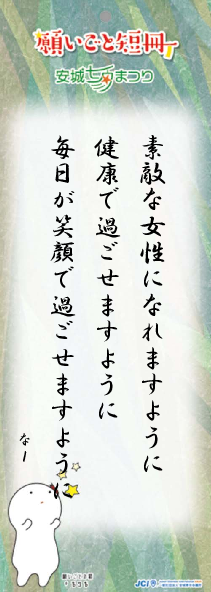 願いごと短冊
安城七夕まつり
素敵な女性になれますように
健康で過ごせますように
毎日が笑顔で過ごせますように
なー
JCI